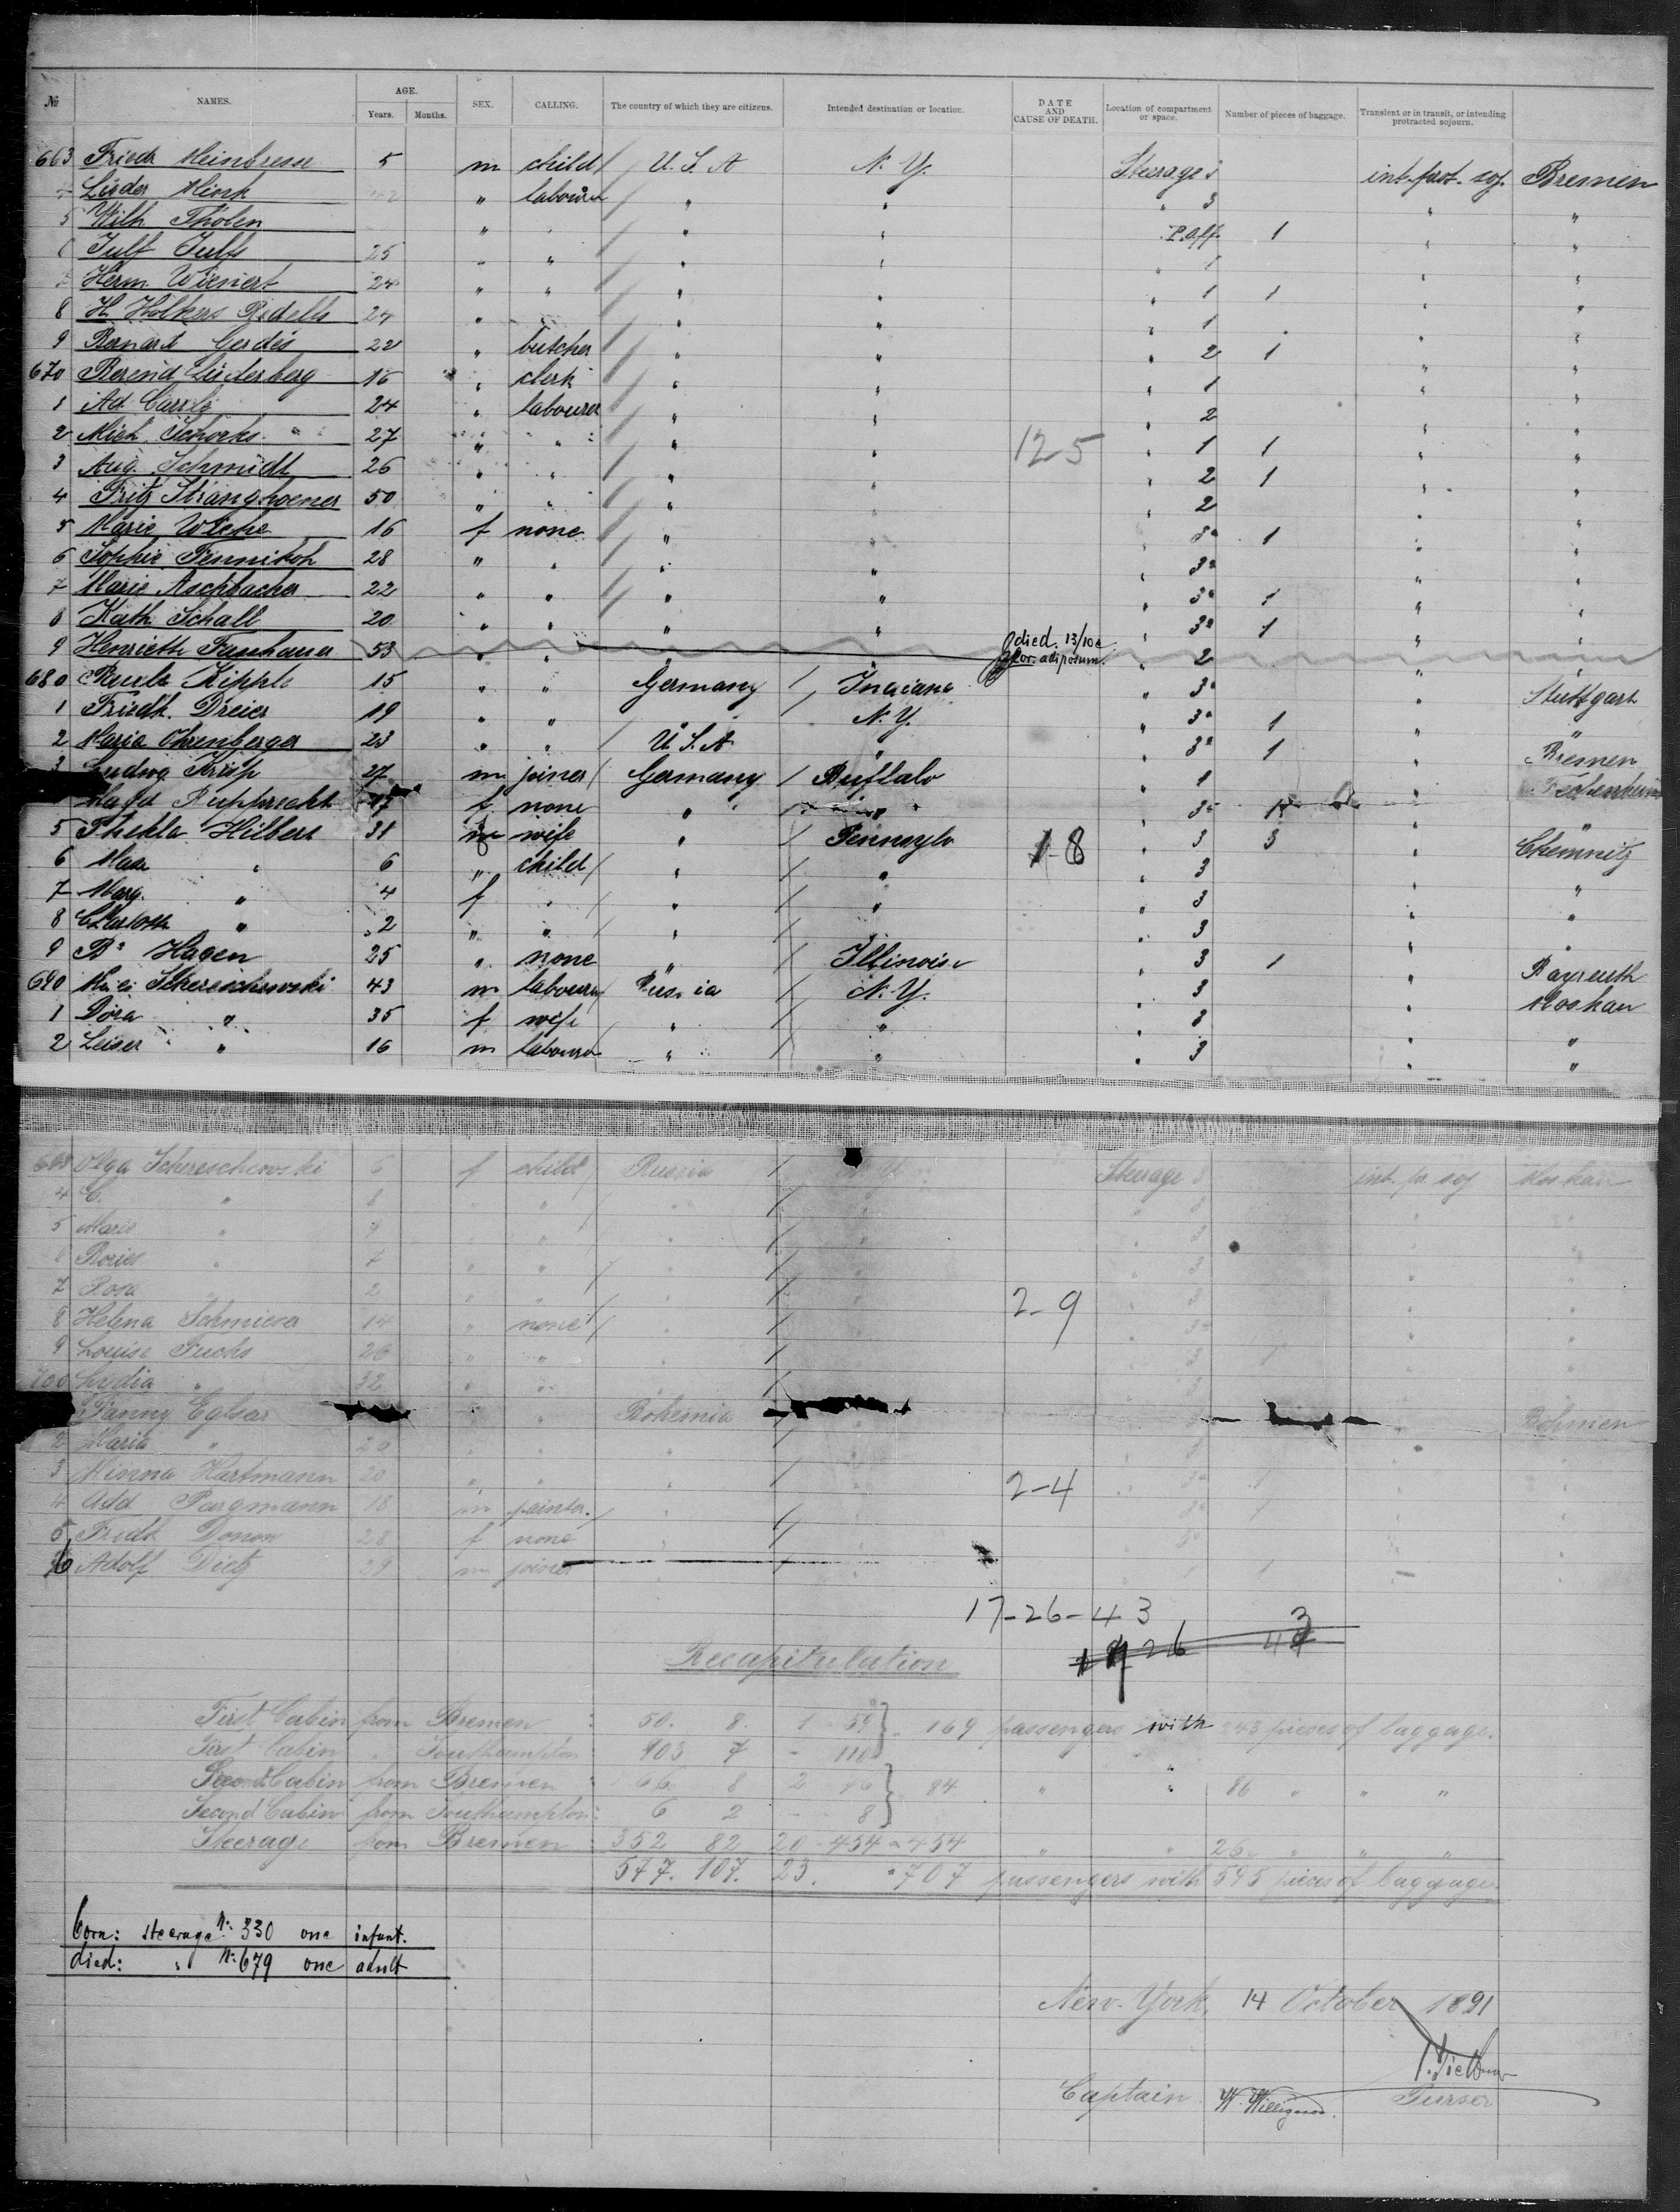 № NAMES. AGE. Years. Months. SEX. CALLING. The country of which they are citizens. Intended destination or location. DATE AND CAUSE OF DEATH. Location of compartment or space. Number of pieces of baggage. Transient or in transit, or intending protracted sojourn.
663 Frieda 5 m child U.S.A N.Y. Steerage int. prot. soj. Bremen
Lüder Mink labourer " " " 3 " "
5 Wilh. Tholen " " " " P.Off. 1 " "
6 Julf Julfs 25 " " " " " 1 " "
Herm. Wienert 24 " " " " " 1 1 " "
8 H. Holkers 24 " " " " " 1 " "
9 Bernard Gerdes 22 " butcher " " " 2 1 " "
670 Berend Lüderberg 16 " clerk " " " 1 " "
1 Ad. 24 " labourer " " " 2 " "
2 Mich. Schorks 27 " " " " 125 " 1 1 " "
3 Aug. Schmidt 26 " " " " " 2 1 " "
4 Fritz Stranghoener 50 " " " " " 2 " "
5 Marie 16 f none " " " 3a 1 " "
6 Sophie 28 " " " " " 3a " "
7 Marie Aschbacher 22 " " " " " 3a 1 " "
8 Kath. Schall 20 " " " " " 3a 1 " "
9 Henriette Fanhauer 53 " " " " died. 13/10 Cor. adiposum. " 2 " "
680 Kipple 15 " " Germany Indiana " 3a " Stuttgart
1 Friedk. Dreier 19 " " " N.Y. " 3a 1 " "
2 Maria Ohrenberger 23 " " U.S.A. " " 3a 1 " Bremen
3 Ludwig Krisp 27 m joiner Germany Buffalo " 1 " Fechenheim
Magd. Rupprecht 17 f none " " " 3a 1 " "
5 Thekla Hilbert 31 wife " Pennsylv 1-8 " 3 3 " Chemnitz
6 Max " 6 " child " " " 3 " "
7 Marg. " 4 f " " " " 3 " "
8 Charlotte " 2 " " " " " 3 " "
9 Hagen 25 " none " Illinois " 3 1 " Bayreuth
690 Schereschewski 43 m labourer Russia N.Y. " 3 " Moskau
1 Dora " 35 f wife " " " 3 " "
2 Leiser " 16 m labourer " " " 3 " "
693 Olga Schereschewski 6 f child Russia N.Y. Steerage 3 int. pr. soj Moskau
4 C. " 8 " " " " " 3 " "
5 Marie " 9 " " " " " 3 " "
6 Bories " 7 " " " " " 3 " "
7 Rosa " 2 " " " " 2-9 " 3 " "
8 Helena Schmieser 14 " none " " " 3a " "
9 Louise Fuchs 26 " " " " " 3 1 " "
700 Lydia " 32 " " " " " 3 " "
Fanny Eglsar " " Bohemia Böhmen
2 Maria " 20 " " " " " 3 " "
3 Minna Hartmann 20 " " " " 2-4 " 3a 1 " "
4 Add Pargmann 18 m painter. " " " 3a 1 " "
5 Fredk Donon 28 f none " " " 3a " "
6 Adolf Dietz 29 m joiner " " " 1 1 " "
17-26-43
26 43
Recapitulation
First Cabin from Bremen : 50. 8. 1 59 } 169 passengers with 243 pieces of baggage.
First Cabin " Southampton : 103 7 - 110
Second Cabin from Bremen : 66 8 2 86 } 84 " " 86 " " "
Second Cabin from Southampton : 6 2 - 8
Steerage from Bremen : 352 82 20 - 454 = 454 " " 26 " " "
547. 107. 23. = 707 passengers with 595 pieces of baggage.
born: steerage No. 330 one infant.
died: " No. 679 one adult
New-York, 14 October 1891
Captain W. Willigerod. Purser